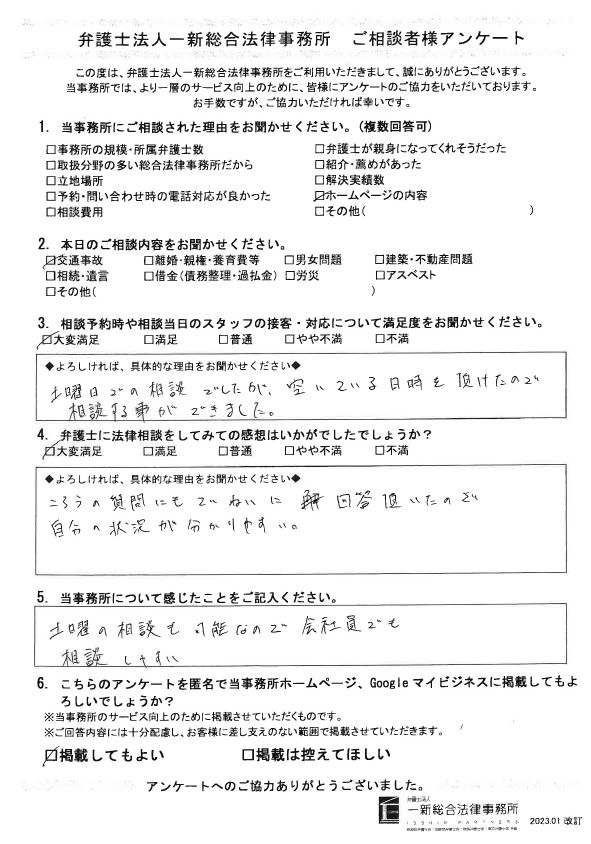 弁護士法人一新総合法律事務所　ご相談者様アンケート
この度は、弁護士法人一新総合法律事務所をご利用いただきまして、誠にありがとうございます。
当事務所では、より一層のサービス向上のために、皆様にアンケートのご協力をいただいております。
お手数ですが、ご協力いただければ幸いです。
1. 当事務所にご相談された理由をお聞かせください。(複数回答可)
□事務所の規模・所属弁護士数　□弁護士が親身になってくれそうだった
□取扱分野の多い総合法律事務所だから　□紹介・薦めがあった
□立地場所　□解決実績数
□予約・問い合わせ時の電話対応が良かった　☑ホームページの内容
□相談費用　□その他(　)
2. 本日のご相談内容をお聞かせください。
☑交通事故　□離婚・親権・養育費等　□男女問題　□建築・不動産問題
□相続・遺言　□借金(債務整理・過払金)　□労災　□アスベスト
□その他(　)
3. 相談予約時や相談当日のスタッフの接客・対応について満足度をお聞かせください。
☑大変満足　□満足　□普通　□やや不満　□不満
◆よろしければ、具体的な理由をお聞かせください◆
土曜日での相談でしたが、空いている日時を頂けたので
相談する事ができました。
4. 弁護士に法律相談をしてみての感想はいかがでしたでしょうか?
☑大変満足　□満足　□普通　□やや不満　□不満
◆よろしければ、具体的な理由をお聞かせください◆
こちらの質問にもていねいに回答頂いたので
自分の状況が分かりやすい。
5. 当事務所について感じたことをご記入ください。
土曜の相談も可能なので会社員でも
相談しやすい
6. こちらのアンケートを匿名で当事務所ホームページ、Googleマイビジネスに掲載してもよ
ろしいでしょうか?
※当事務所のサービス向上のために掲載させていただくものです。
※ご回答内容には十分配慮し、お客様に差し支えのない範囲で掲載させていただきます。
☑掲載してもよい　□掲載は控えてほしい
アンケートへのご協力ありがとうございました。
弁護士法人
一新総合法律事務所
ISSHIN PARTNERS
2023.01 改訂